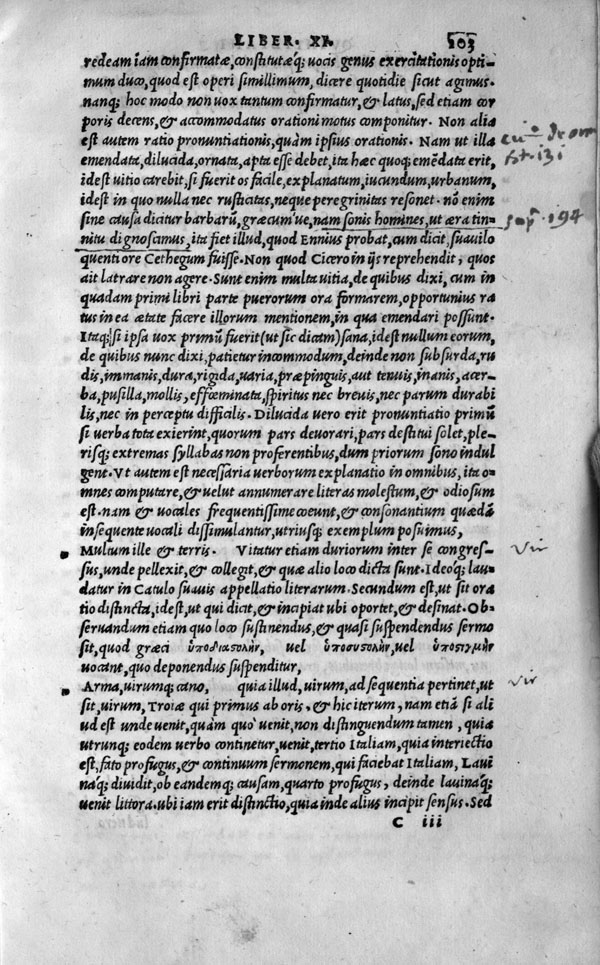 LIBER. XI. 103
redeam iam confirmatæ, constitutæq; uocis genus exercitationis opti
mum duco, quod est operi simillimum, dicere quotidie sicut agimus.
nanq; hoc modo non uox tantum confirmatur, & latus, sed etiam cor
poris decens, & accommodatus orationi motus componitur. Non alia
est autem ratio pronuntiationis, quàm ipsius orationis. Nam ut illa
emendata, dilucida, ornata, apta esse debet, ita hæc quoq; emēdata erit,
idest uitio carebit, si fuerit os facile, explanatum, iucundum, urbanum,
idest in quo nulla nec rusticitas, neque peregrinitas resonet. nō enim
sine causa dicitur barbarū, græcum'ue, nam sonis homines, ut æra tin-
nitu dignoscimus, ita fiet illud, quod Ennius probat, cum dicit, suauilo
quenti ore Cethegum fuisse. Non quod Cicero in ijs reprehendit, quos
ait latrare non agere. Sunt enim multa uitia, de quibus dixi, cum in
quadam primi libri parte puerorum ora formarem, opportunius ra
tus in ea ætate facere illorum mentionem, in qua emendari possunt.
Itaq; si ipsa uox primū fuerit (ut sic dicam) sana, idest nullum eorum,
de quibus nunc dixi, patietur incommodum, deinde non subsurda, ru
dis, immanis, dura, rigida, uaria, præpinguis, aut tenuis, inanis, acer-
ba, pusilla, mollis, effœminata, spiritus nec breuis, nec parum durabi
lis, nec in perceptu difficilis. Dilucida uero erit pronuntiatio primū
si uerba tota exierint, quorum pars deuorari, pars destitui solet, ple-
risq; extremas syllabas non proferentibus, dum priorum sono indul
gent. Vt autem est necessaria uerborum explanatio in omnibus, ita o-
mnes computare, & uelut annumerare literas molestum, & odiosum
est. nam & uocales frequentissime coeunt, & consonantium quædā
insequente uocali dissimulantur, utriusq; exemplum posuimus,
Multum ille & terris. Vitatur etiam duriorum inter se congres-
sus, unde pellexit, & collegit, & quæ alio loco dicta sunt. Ideoq; lau-
datur in Catulo suauis appellatio literarum. Secundum est, ut sit ora
tio distincta, idest, ut qui dicit, & incipiat ubi oportet, & desinat. Ob-
seruandum etiam quo loco sustinendus, & quasi suspendendus sermo
sit, quod græci ὑποδιαστολὴν, uel ὑποσυστολὴν, uel ὑποστιγμὴν
uocant, quo deponendus suspenditur,
Arma, uirumq; cano, quia illud, uirum, ad sequentia pertinet, ut
sit, uirum, Troiæ qui primus ab oris, & hic iterum, nam etiā si ali
ud est unde uenit, quàm quo' uenit, non distinguendum tamen, quia
utrunq; eodem uerbo continetur, uenit, tertio Italiam, quia interiectio
est, fato profugus, & continuum sermonem, qui faciebat Italiam, Laui
náq; diuidit, ob eandemq; causam, quarto profugus, deinde lauináq;
uenit littora. ubi iam erit distinctio, quia inde alius incipit sensus. Sed
C iii
194
Vir
vir